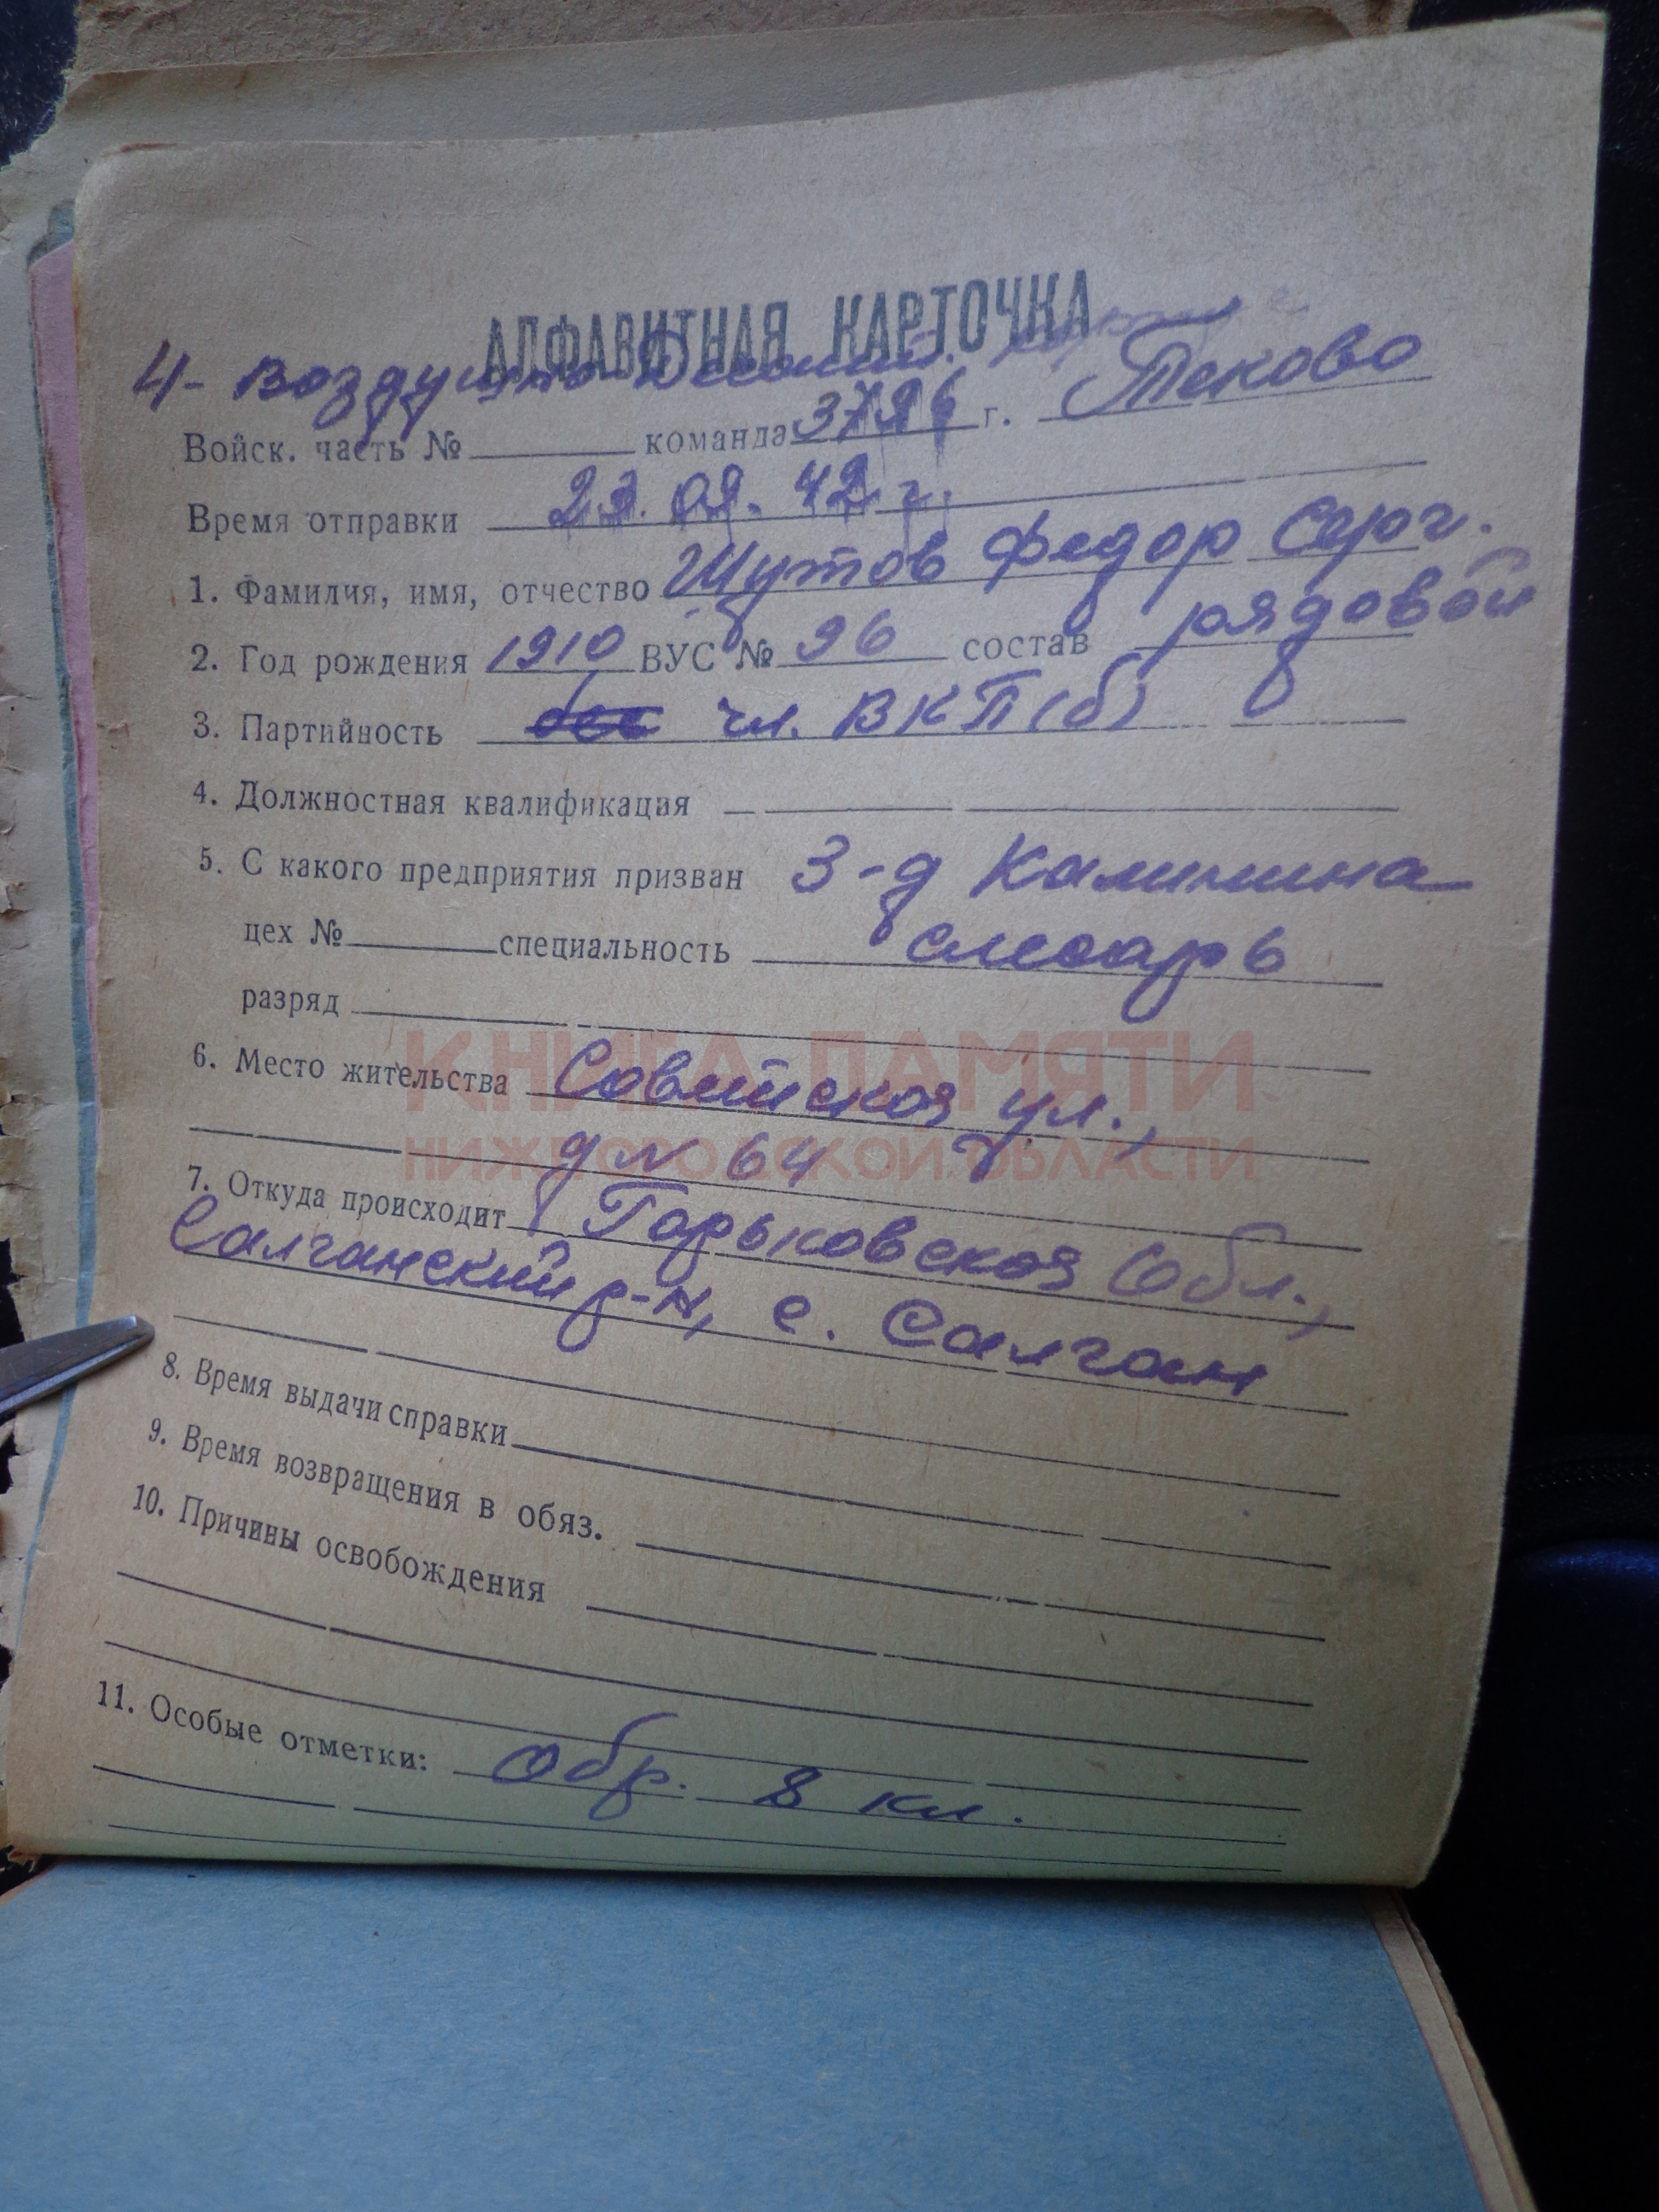 АЛФАВИТНАЯ КАРТОЧКА
4- Воздушно Десант.
Войск. часть № команда 3796 г. Теково
Время отправки 23. 09. 42 г.
1. Фамилия, имя, отчество Шутов Федор Серг.
2. Год рождения 1910 ВУС № 96 состав рядовой
3. Партийность чл. ВКП(б)
4. Должностная квалификация
5. С какого предприятия призван З-д Калинина
цех № специальность слесарь
разряд
6. Место жительства Советская ул.,
д № 64
7. Откуда происходит Горьковская обл.,
Салганский р-н, с. Салган
8. Время выдачи справки
9. Время возвращения в обяз.
10. Причины освобождения
11. Особые отметки: Обр. 8 кл.
КНИГА ПАМЯТИ
НИЖЕГОРОДСКОЙ ОБЛАСТИ